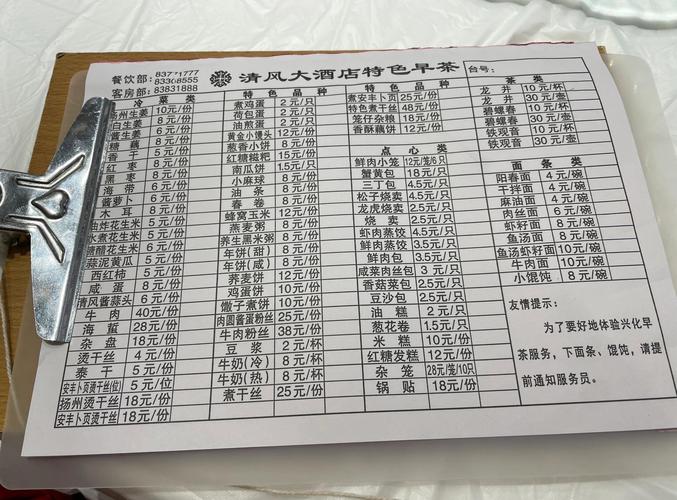 餐饮部:
83368555
客房部:83831888
清风大酒店特色早茶
台号:
冷 菜 类
扬州生姜 10元/份
白生姜 8元/份
酱生姜 6元/份
糖藕 8元/份
香干 5元/份
红枣 8元/份
黑枣 8元/份
海带 6元/份
酱萝卜 6元/份
木耳 8元/份
油炸花生米 5元/份
水煮花生米 5元/份
糖醋花生米 6元/份
蒜泥黄瓜 5元/份
西红柿 5元/份
咸蛋 8元/份
清风酱蒜头 6元/份
牛肉 40元/份
海蜇 28元/份
杂盘 18元/份
烫干丝 4元/份
泰干 5元/份
安丰卜页烫干丝(位) 5元/位
扬州烫干丝 18元/份
安丰卜页烫干丝 18元/份
特 色 品 种
煮鸡蛋 2元/只
荷包蛋 2元/只
油煎蛋 2元/只
黄金小馒头 12元/份
葱香小饼 8元/份
红糖糍粑 15元/份
南瓜饼 1.5元/只
小麻球 8元/份
油条 8元/份
春卷 8元/份
蜂窝玉米 12元/份
燕麦粥 8元/份
养生黑米粥 8元/份
年饼(甜) 8元/份
年饼(咸) 8元/份
荞麦饼 12元/份
鸡蛋饼 10元/份
馓子煮饼 10元/份
肉圆酱蛋粉丝 25元/份
牛肉粉丝 38元/份
豆浆 2元/杯
牛奶(冷) 8元/杯
牛奶(热) 8元/杯
煮干丝 25元/份
特 色 品 种
煮安丰卜页 25元/份
特色煮干丝 48元/份
笼仔杂粮 18元/份
香酥藕饼 12元/份
点 心 类
鲜肉小笼 12元/笼/6只
蟹黄包 18元/只
三丁包 4.5元/只
松子烧卖 4.5元/只
龙虎烧卖 2.5元/只
烧卖 2.5元/只
虾肉蒸饺 4.5元/只
鲜肉蒸饺 3.5元/只
鲜肉包 4.5元/只
咸菜肉丝包 3元/只
香菇菜包 2.5元/只
豆沙包 2.5元/只
油糕 2元/只
葱花卷 1.5元/只
米糕 10元/份
红糖发糕 12元/份
杂笼 28元/笼/10只
锅贴 18元/份
茶 类
龙井 10元/杯
龙井 30元/壶
碧螺春 10元/杯
碧螺春 30元/壶
铁观音 10元/杯
铁观音 30元/壶
面 条 类
阳春面 4元/碗
干拌面 4元/碗
麻油面 4元/碗
肉丝面 6元/碗
虾籽面 8元/碗
鱼汤面 8元/碗
鱼汤虾籽面 10元/碗
牛肉面 10元/碗
小馄饨 8元/碗
友情提示:
为了要好地体验兴化早
茶服务,下面条、馄饨,请提
前通知服务员。